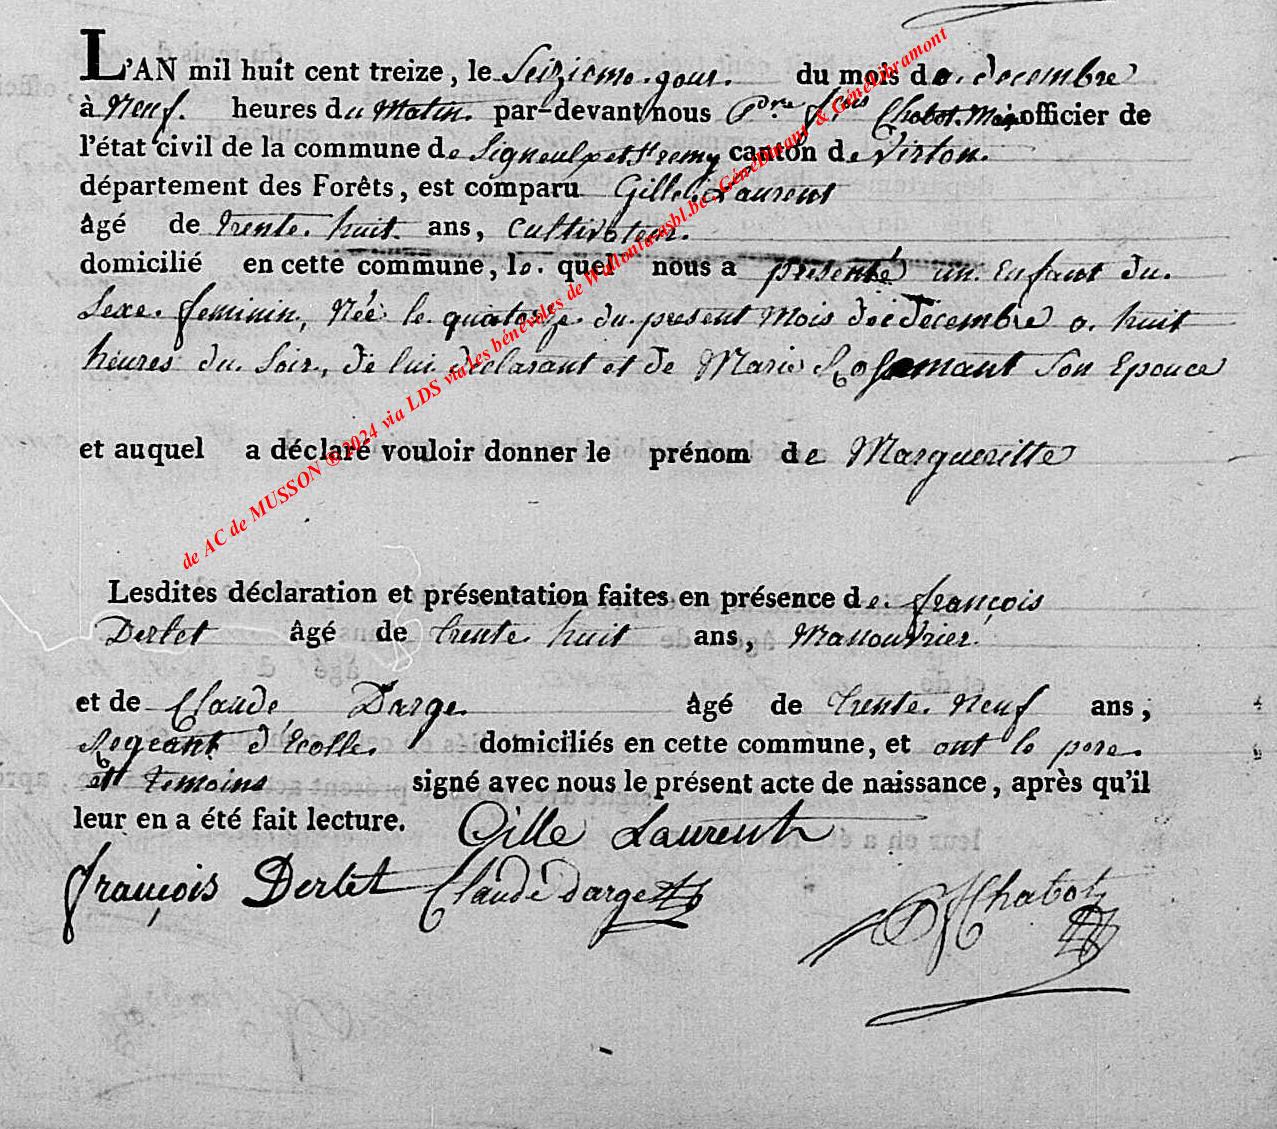 L'AN mil huit cent treize, le Seizieme jour. du mois de decembre
à Neuf. heures du Matin. par-devant nous Pre fois Chabot. Mai officier de
l'état civil de la commune de Signeulx et St remy canton de Virton.
département des Forêts, est comparu Gille Laurent
âgé de trente. huit ans, Cultivateur.
domicilié en cette commune, le. quel nous a présenté un Enfant du.
Sexe feminin, Née le quatorze du present Mois de decembre a. huit
heures du Soir, de lui declarant et de Marie Rosemant Son Epouce
et auquel a déclaré vouloir donner le prénom de Margueritte
Lesdites déclaration et présentation faites en présence de françois
Derlet âgé de trente huit ans, Manouvrier.
et de Claude Darge âgé de trente. Neuf ans,
Regeant d'Ecolle. domiciliés en cette commune, et ont le pere.
et temoins signé avec nous le présent acte de naissance, après qu'il
leur en a été fait lecture. Gille Laurent
françois Derlet Claude darge Chabot
de AC de MUSSON ® 2024 via LDS via les bénévoles de Wallonia-asbl.be, Génédinant & Génélibramont